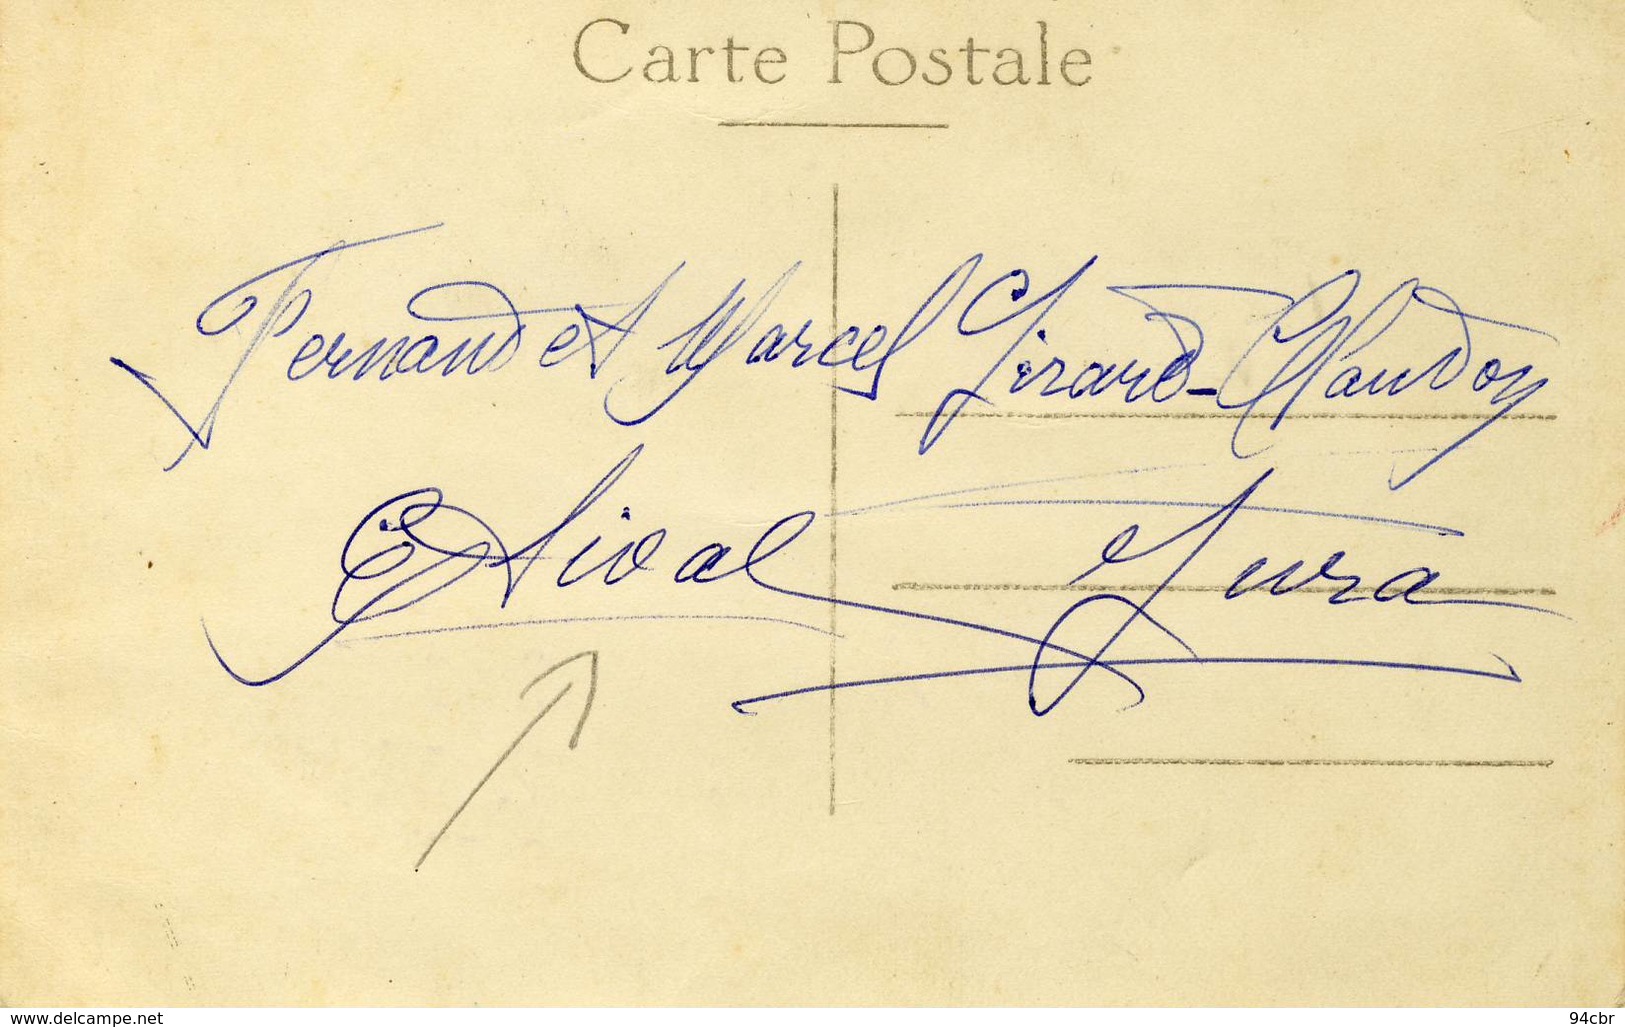 Carte Postale
Fernand et Marcel Girard-Claudon
Etival Jura
www.delcampe.net
94cbr